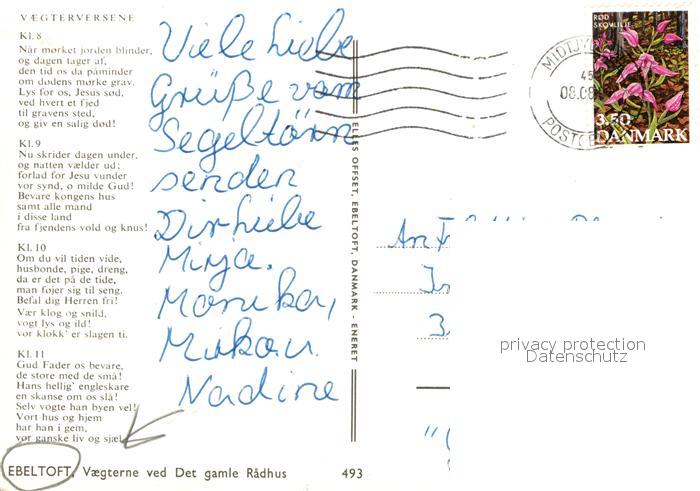 VÆGTERVERSENE
Kl. 8
Når mørket jorden blinder,
og dagen tager af,
den tid os da påminder
om dødens mørke grav.
Lys for os, Jesus sød,
ved hvert et fjed
til gravens sted,
og giv en salig død!
Kl. 9
Nu skrider dagen under,
og natten vælder ud;
forlad for Jesu vunder
vor synd, o milde Gud!
Bevare kongens hus
samt alle mand
i disse land
fra fjendens vold og knus!
Kl. 10
Om du vil tiden vide,
husbonde, pige, dreng,
da er det på de tide,
man føjer sig til seng.
Befal dig Herren fri!
Vær klog og snild,
vogt lys og ild!
vor klokk' er slagen ti.
Kl. 11
Gud Fader os bevare,
de store med de små!
Hans hellig' engleskare
en skanse om os slå!
Selv vogte han byen vel!
Vort hus og hjem
har han i gem,
vor ganske liv og sjæl.
EBELTOFT, Vægterne ved Det gamle Rådhus 493
Viele liebe
Grüße vom
Segeltörn
senden
Dir liebe
Mirja.
Monika,
Nadine
ELLES OFFSET, EBELTOFT, DANMARK - ENERET
RØD
SKOVLILJE
3.50
DANMARK
MIDTJY
45
08.08
POST
An
privacy protection
Datenschutz